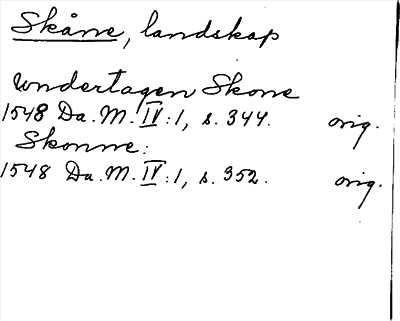 Skåne, landskap
undertagen Skone
1548 Da. M. IV:1, s. 344. orig.
Skonne:
1548 Da. M. IV:1, s. 352. orig.